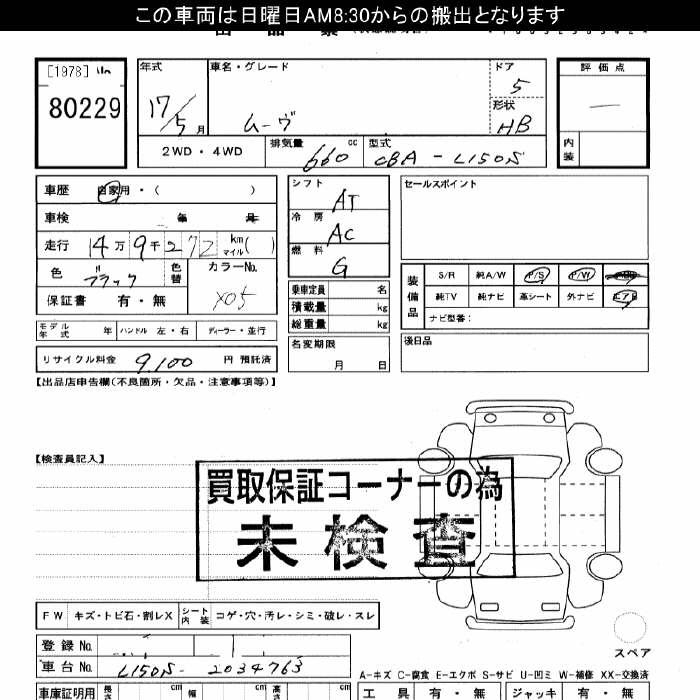 この車両は日曜日AM8:30からの搬出となります
[1978]
80229
年式 17/5 月
車名・グレード ムーヴ
ドア 5
形状 HB
評価点 —
内装
2WD・4WD
排気量 660 cc
型式 CBA - L150S
車歴 自家用・( )
車検 年 月
走行 4万9千272 km マイル( )
色 ブラック 色替
カラーNo. X05
保証書 有・無
シフト AT
冷房 AC
燃料 G
乗車定員 名
積載量 kg
総重量 kg
名変期限 月 日
セールスポイント
装備品 S/R 純A/W P/S P/W
純TV 純ナビ 革シート 外ナビ エアB
ナビ型番:
後日品
モデル年式 年 ハンドル 左・右 ディーラー・並行
リサイクル料金 9,100 円 預託済
【出品店申告欄(不良箇所・欠品・注意事項等)】
【検査員記入】
買取保証コーナーの為
未検査
FW キズ・トビ石・割レX シート内装 コゲ・穴・汚レ・シミ・破レ・スレ
スペア
登録No.
車台No. L150S - 2034763
A-キズ C-腐食 E-エクボ S-サビ U-凹ミ W-補修 XX-交換済
車庫証明用 長さ cm 幅 cm 高さ cm
工具 有・無 ジャッキ 有・無